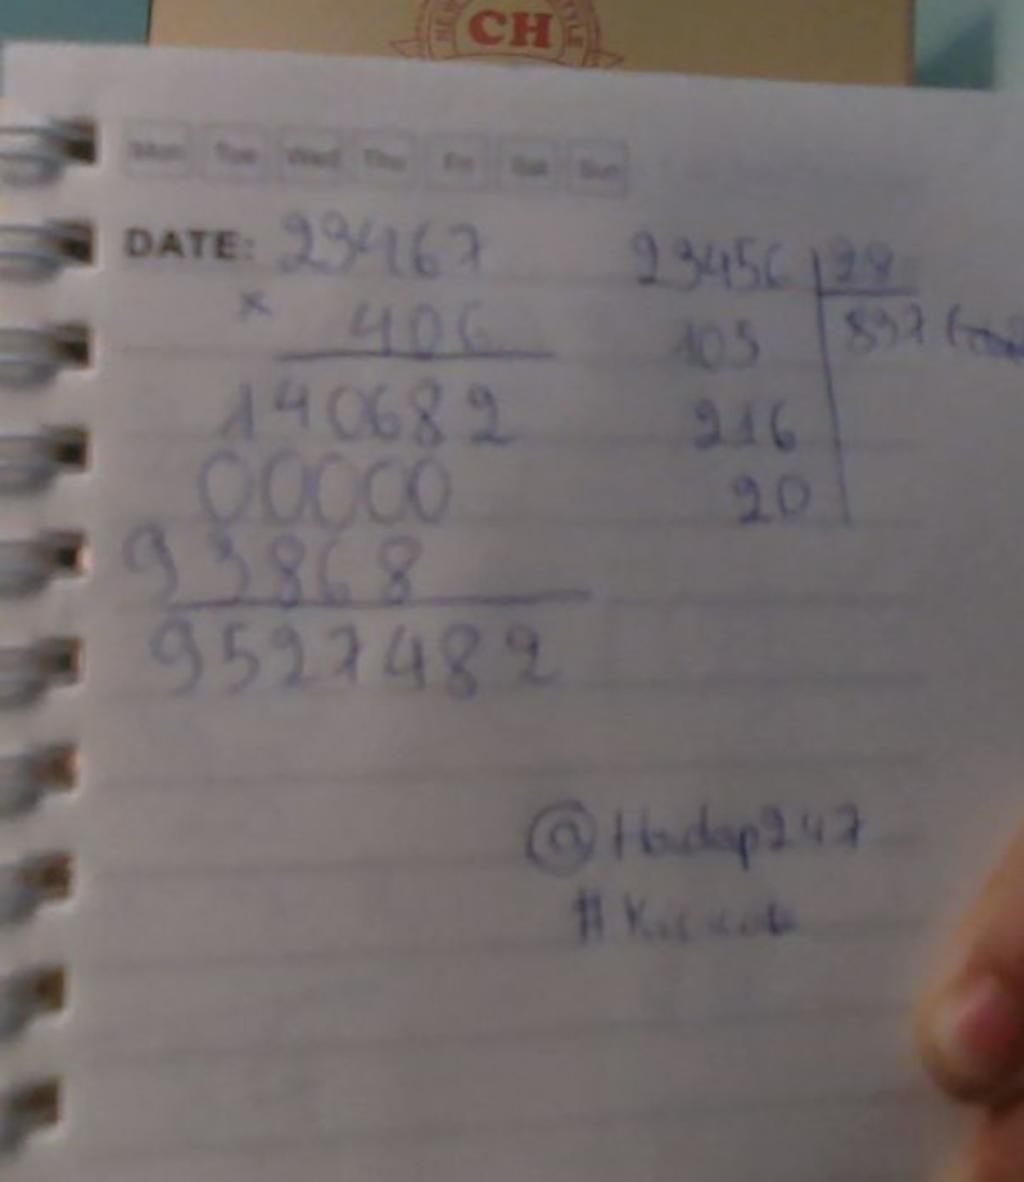 CH
Mon Tue Wed Thu Fri Sat Sun
DATE: 23467
×
406
140682
00000
93868
9527482
23456 28
837
105
216
20
@Hoidap247